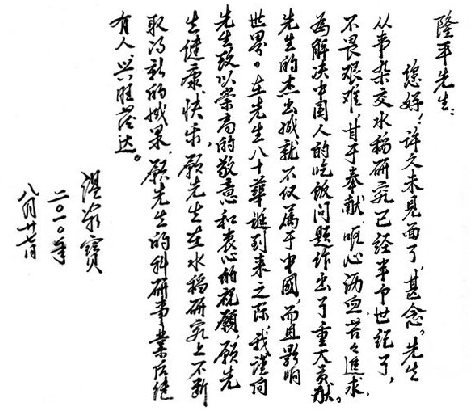 隆平先生：
您好，许久未见面了，甚念。先生
从事杂交水稻研究已经半个世纪了，
不畏艰难，甘于奉献，呕心沥血，苦々追求，
为解决中国人的吃饭问题作出了重大贡献。
先生的杰出成就不仅属于中国，而且影响
世界。在先生八十华诞到来之际，我谨向
先生致以崇高的敬意和衷心的祝愿，愿先
生健康、快乐，愿先生在水稻研究上不断
取得新的成果，愿先生的科研事业后继
有人、兴旺发达。
温家宝
二〇一〇年
八月廿七日